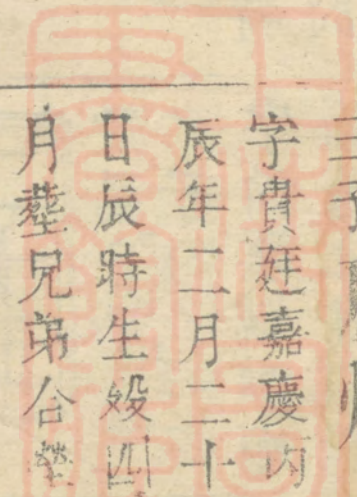 三子
字貴廷嘉慶丙
辰年二月二十
日辰時生殁四
月塟兄弟合塋